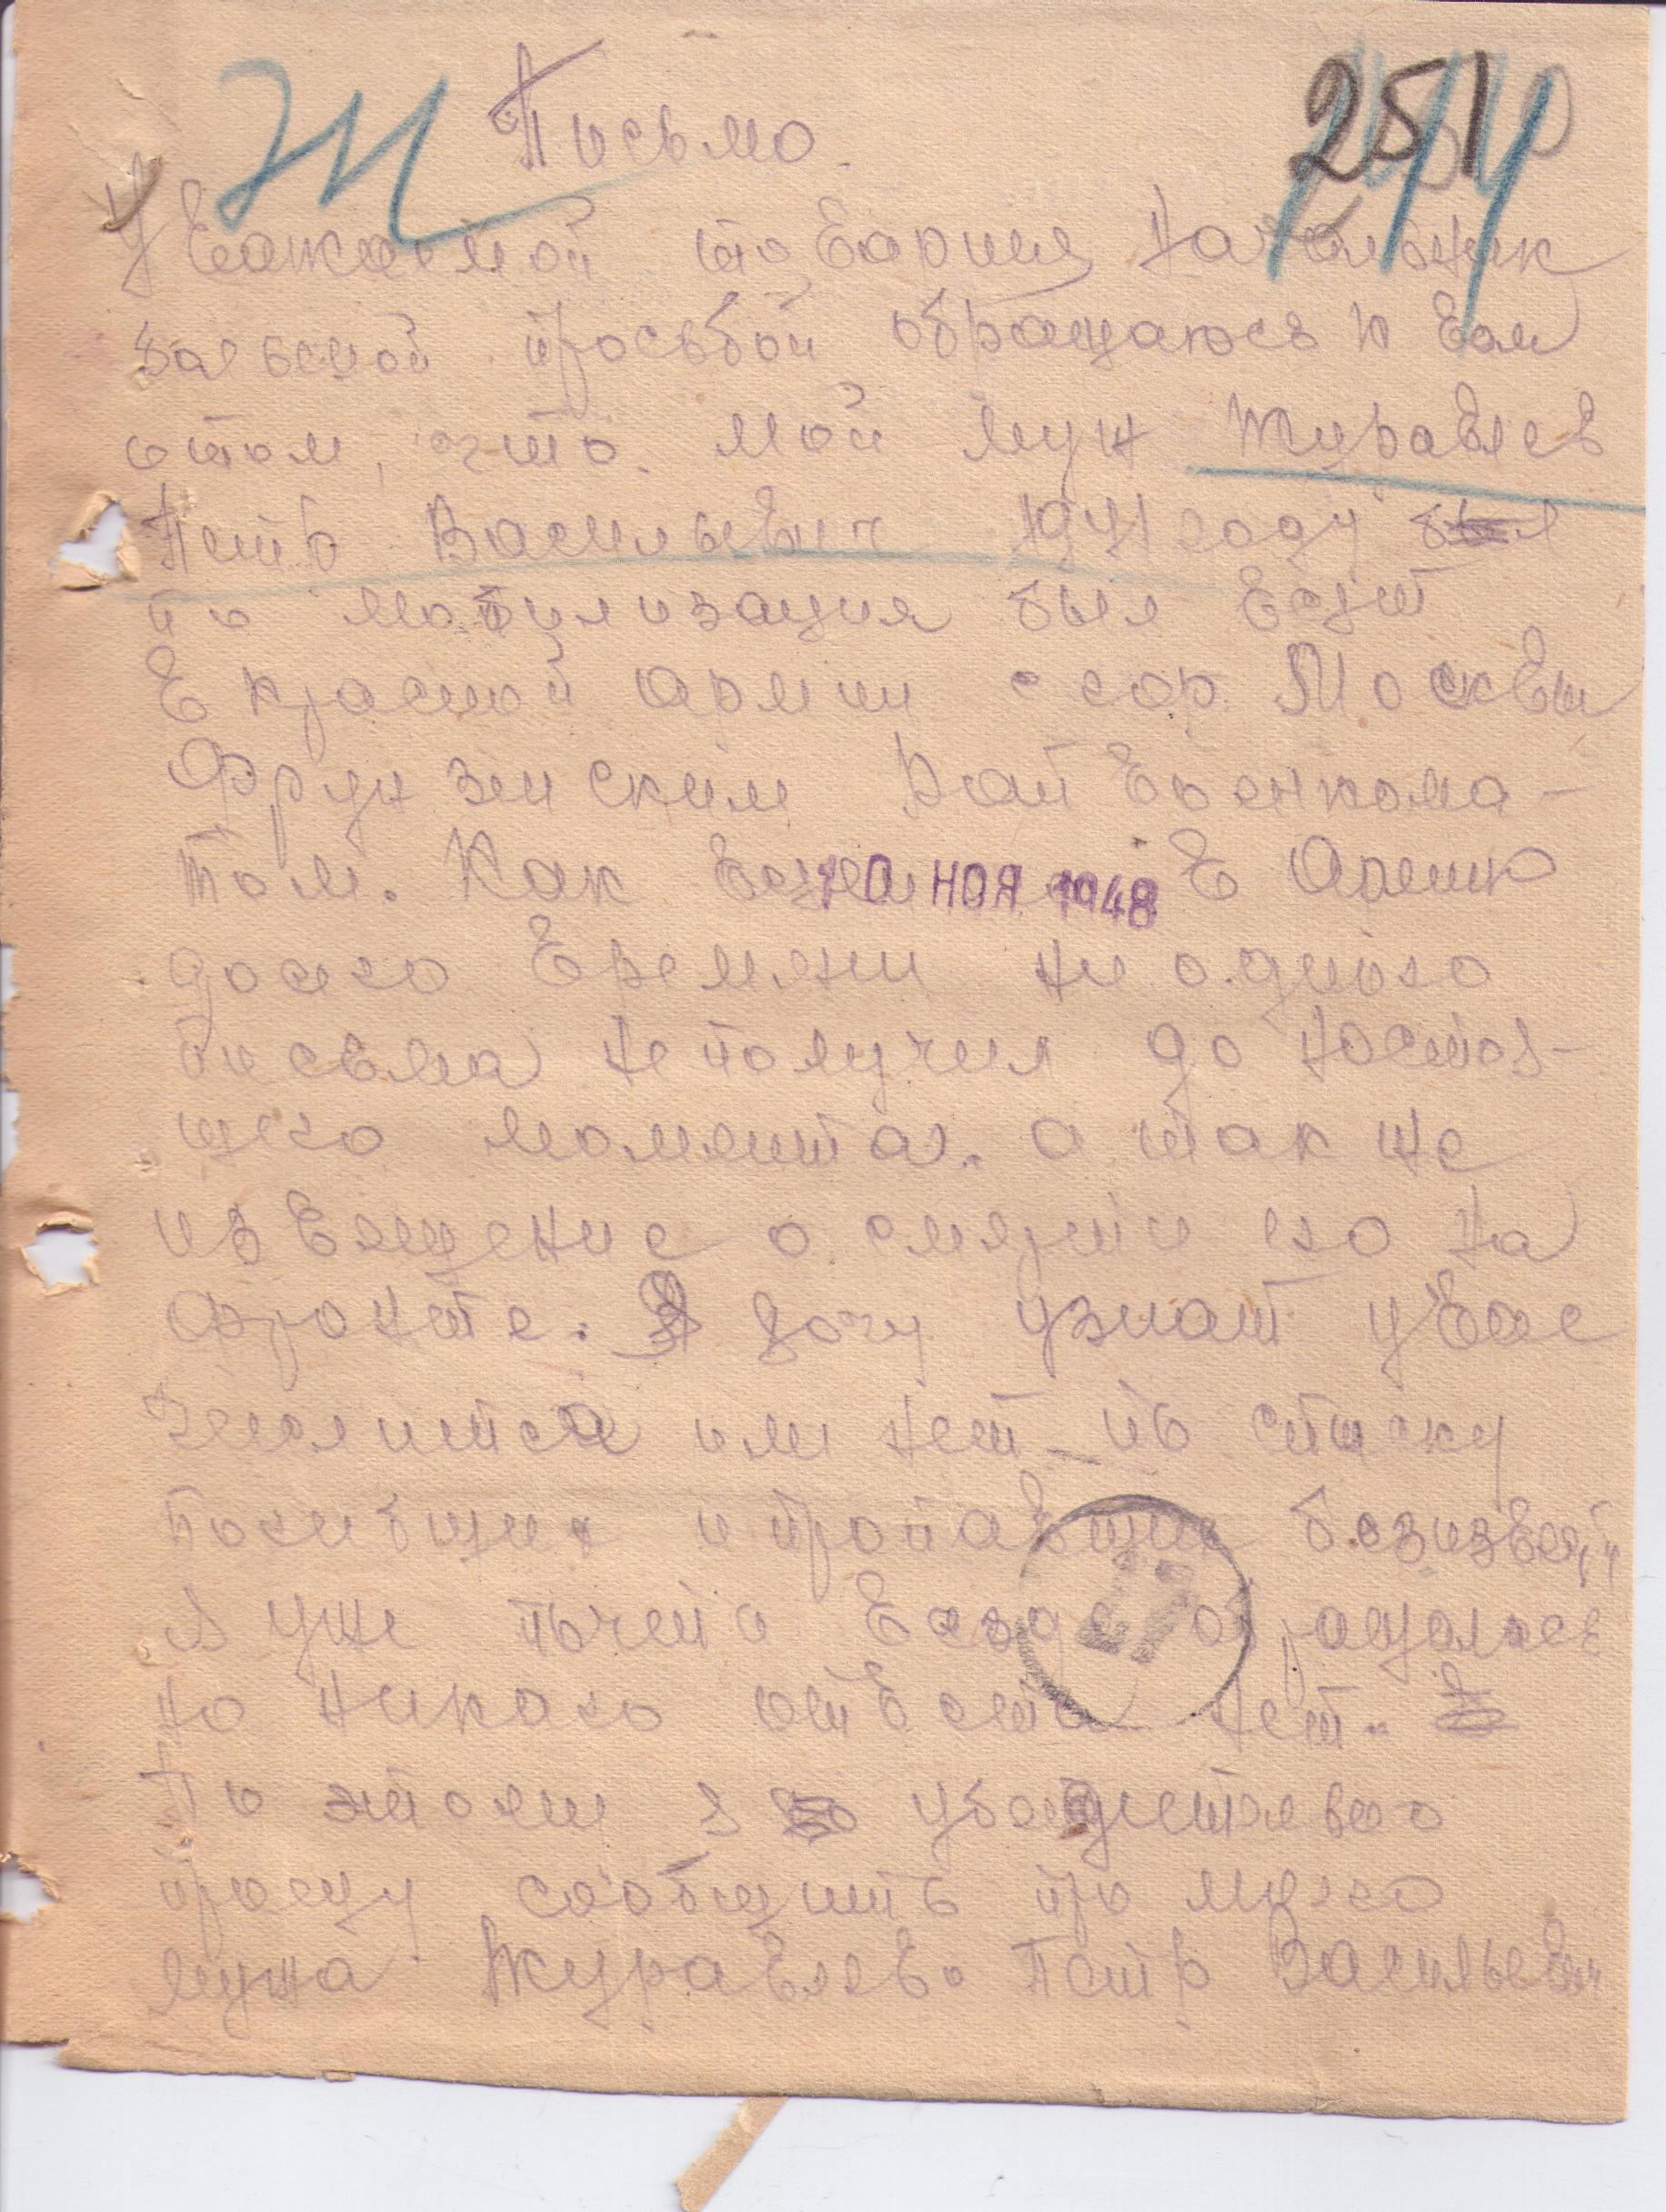 Ж Письмо. 251
Уважаемой товарищ Начальник
просьбой обращаюсь к вам
о том, что. мой муж Журавлев
Петр Васильевич 1941 году
по мобилизация был взят
в красной армии с гор. Москвы
Фрунзиским Райвоенкома-
том. Как в Армию
10 НОЯ 1948
до сего времени ни одного
письма не получил до настоя-
щего момента. а так же
извещение о смерти его на
фронте. Я хочу узнат у вас
или нет по списку
погибших и пропавших
Я уже почти везде обращалась
но никакого ответа нет.
По этому я убедительно
прошу сообщить про моего
мужа Журавлев. Петр Васильевич